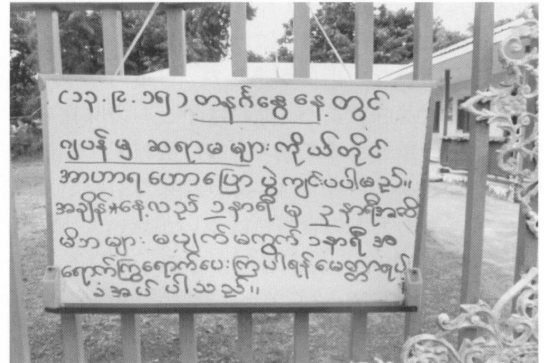 (၁၃.၉.၁၅) တနင်္ဂနွေနေ့တွင်
ဂျပန်မှ ဆရာမများကိုယ်တိုင်
အာဟာရဟောပြောပွဲကျင်းပပါမည်။
အချိန်*နေ့လည် ၁နာရီ မှ ၃ နာရီအထိ
မိဘများ မပျက်မကွက် ၁နာရီ အ
ရောက်ကြွရောက်ပေးကြပါရန် မေတ္တာရပ်
ခံအပ် ပါသည်။